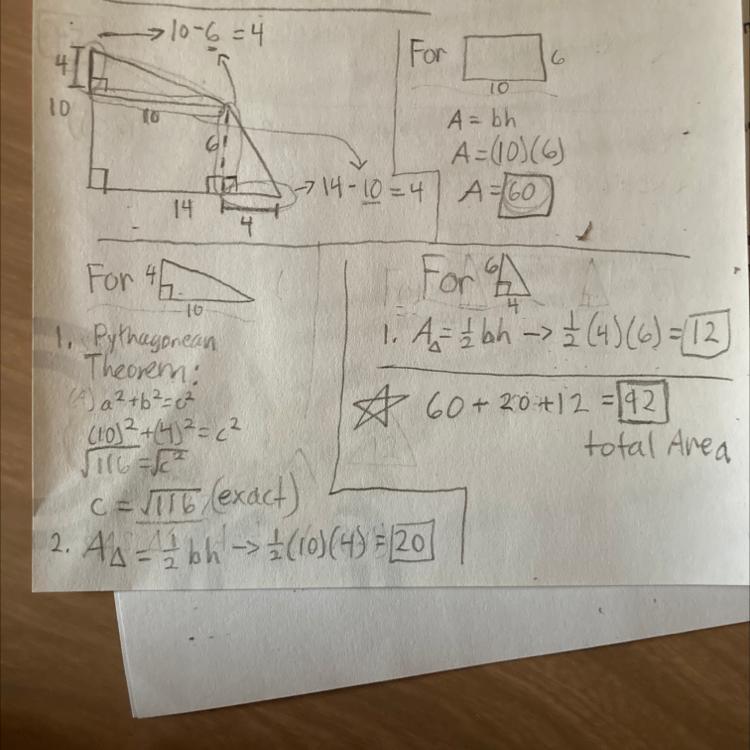 → 10-6 = 4
4
10
10
6
→ 14-10 = 4
14
4
For 6
10
A = bh
A = (10)(6)
A = 60
For 4
10
1. Pythagorean
Theorem:
a²+b²=c²
(10)²+(4)²=c²
√116 = √c²
c = √116 (exact)
2. A△ = ½ bh → ½(10)(4) = 20
For 6
4
1. A△ = ½ bh → ½ (4)(6) = 12
☆ 60 + 20 + 12 = 92
total Area